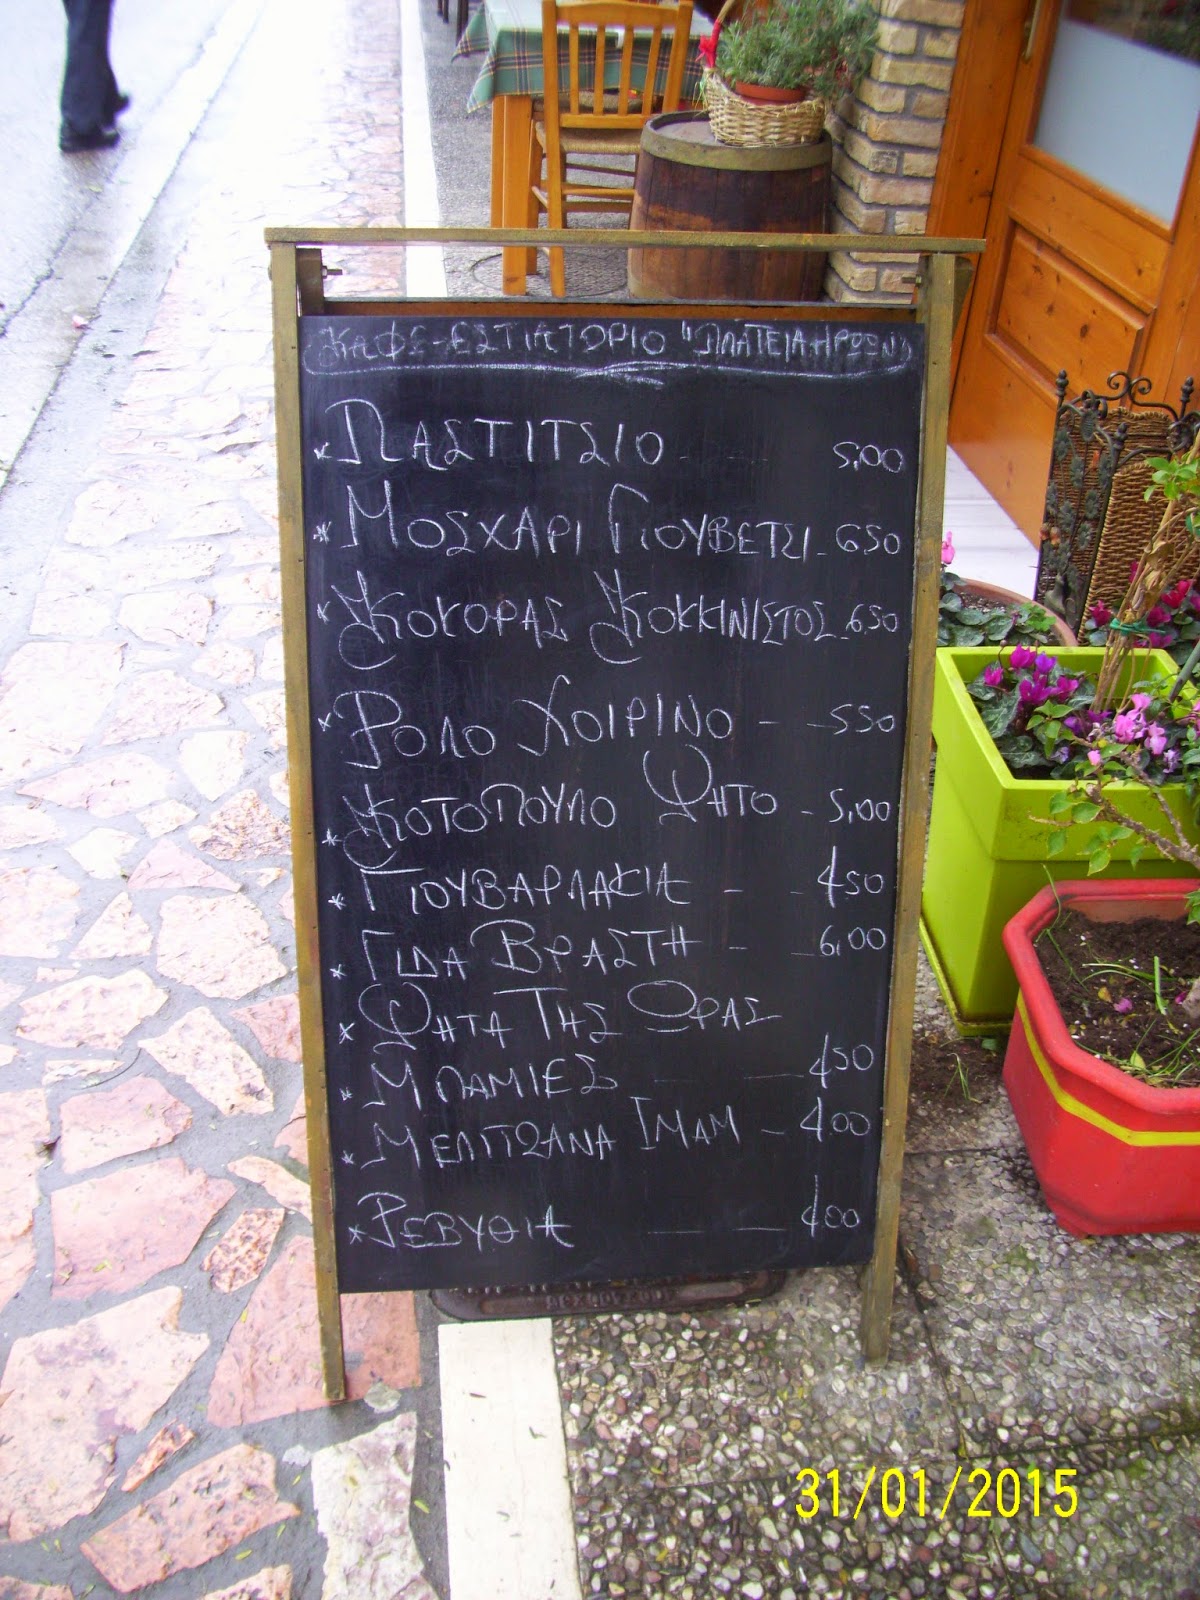 ΚΑΦΕ-ΕΣΤΙΑΤΟΡΙΟ "ΠΛΑΤΕΙΑ ΗΡΩΩΝ"
* ΠΑΣΤΙΤΣΙΟ - - 5,00
* ΜΟΣΧΑΡΙ ΓΙΟΥΒΕΤΣΙ - 6.50
* ΚΟΚΟΡΑΣ ΚΟΚΚΙΝΙΣΤΟΣ - 6.50
* ΡΟΛΟ ΧΟΙΡΙΝΟ - - 5.50
* ΚΟΤΟΠΟΥΛΟ ΨΗΤΟ - 5,00
* ΓΙΟΥΒΑΡΛΑΚΙΑ - - 4.50
* ΓΙΔΑ ΒΡΑΣΤΗ - - 6,00
* ΨΗΤΑ ΤΗΣ ΩΡΑΣ
* ΜΠΑΜΙΕΣ - - 4.50
* ΜΕΛΙΤΖΑΝΑ ΙΜΑΜ - 4.00
* ΡΕΒΥΘΙΑ - - 4.00
31/01/2015